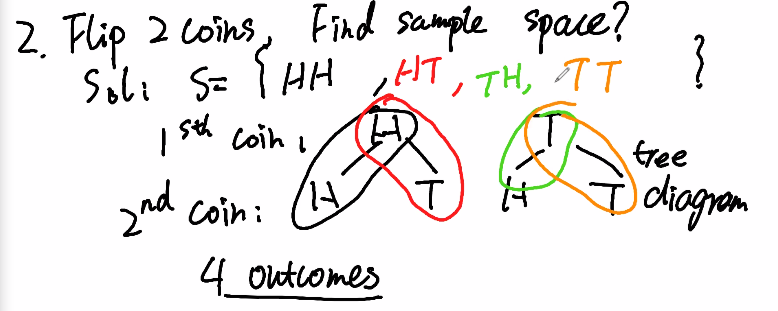 2. Flip 2 coins, Find sample space?
Sol: S= { HH , HT, TH, TT }
1sth coin: H T
tree
2nd coin: H T H T diagram
4 outcomes